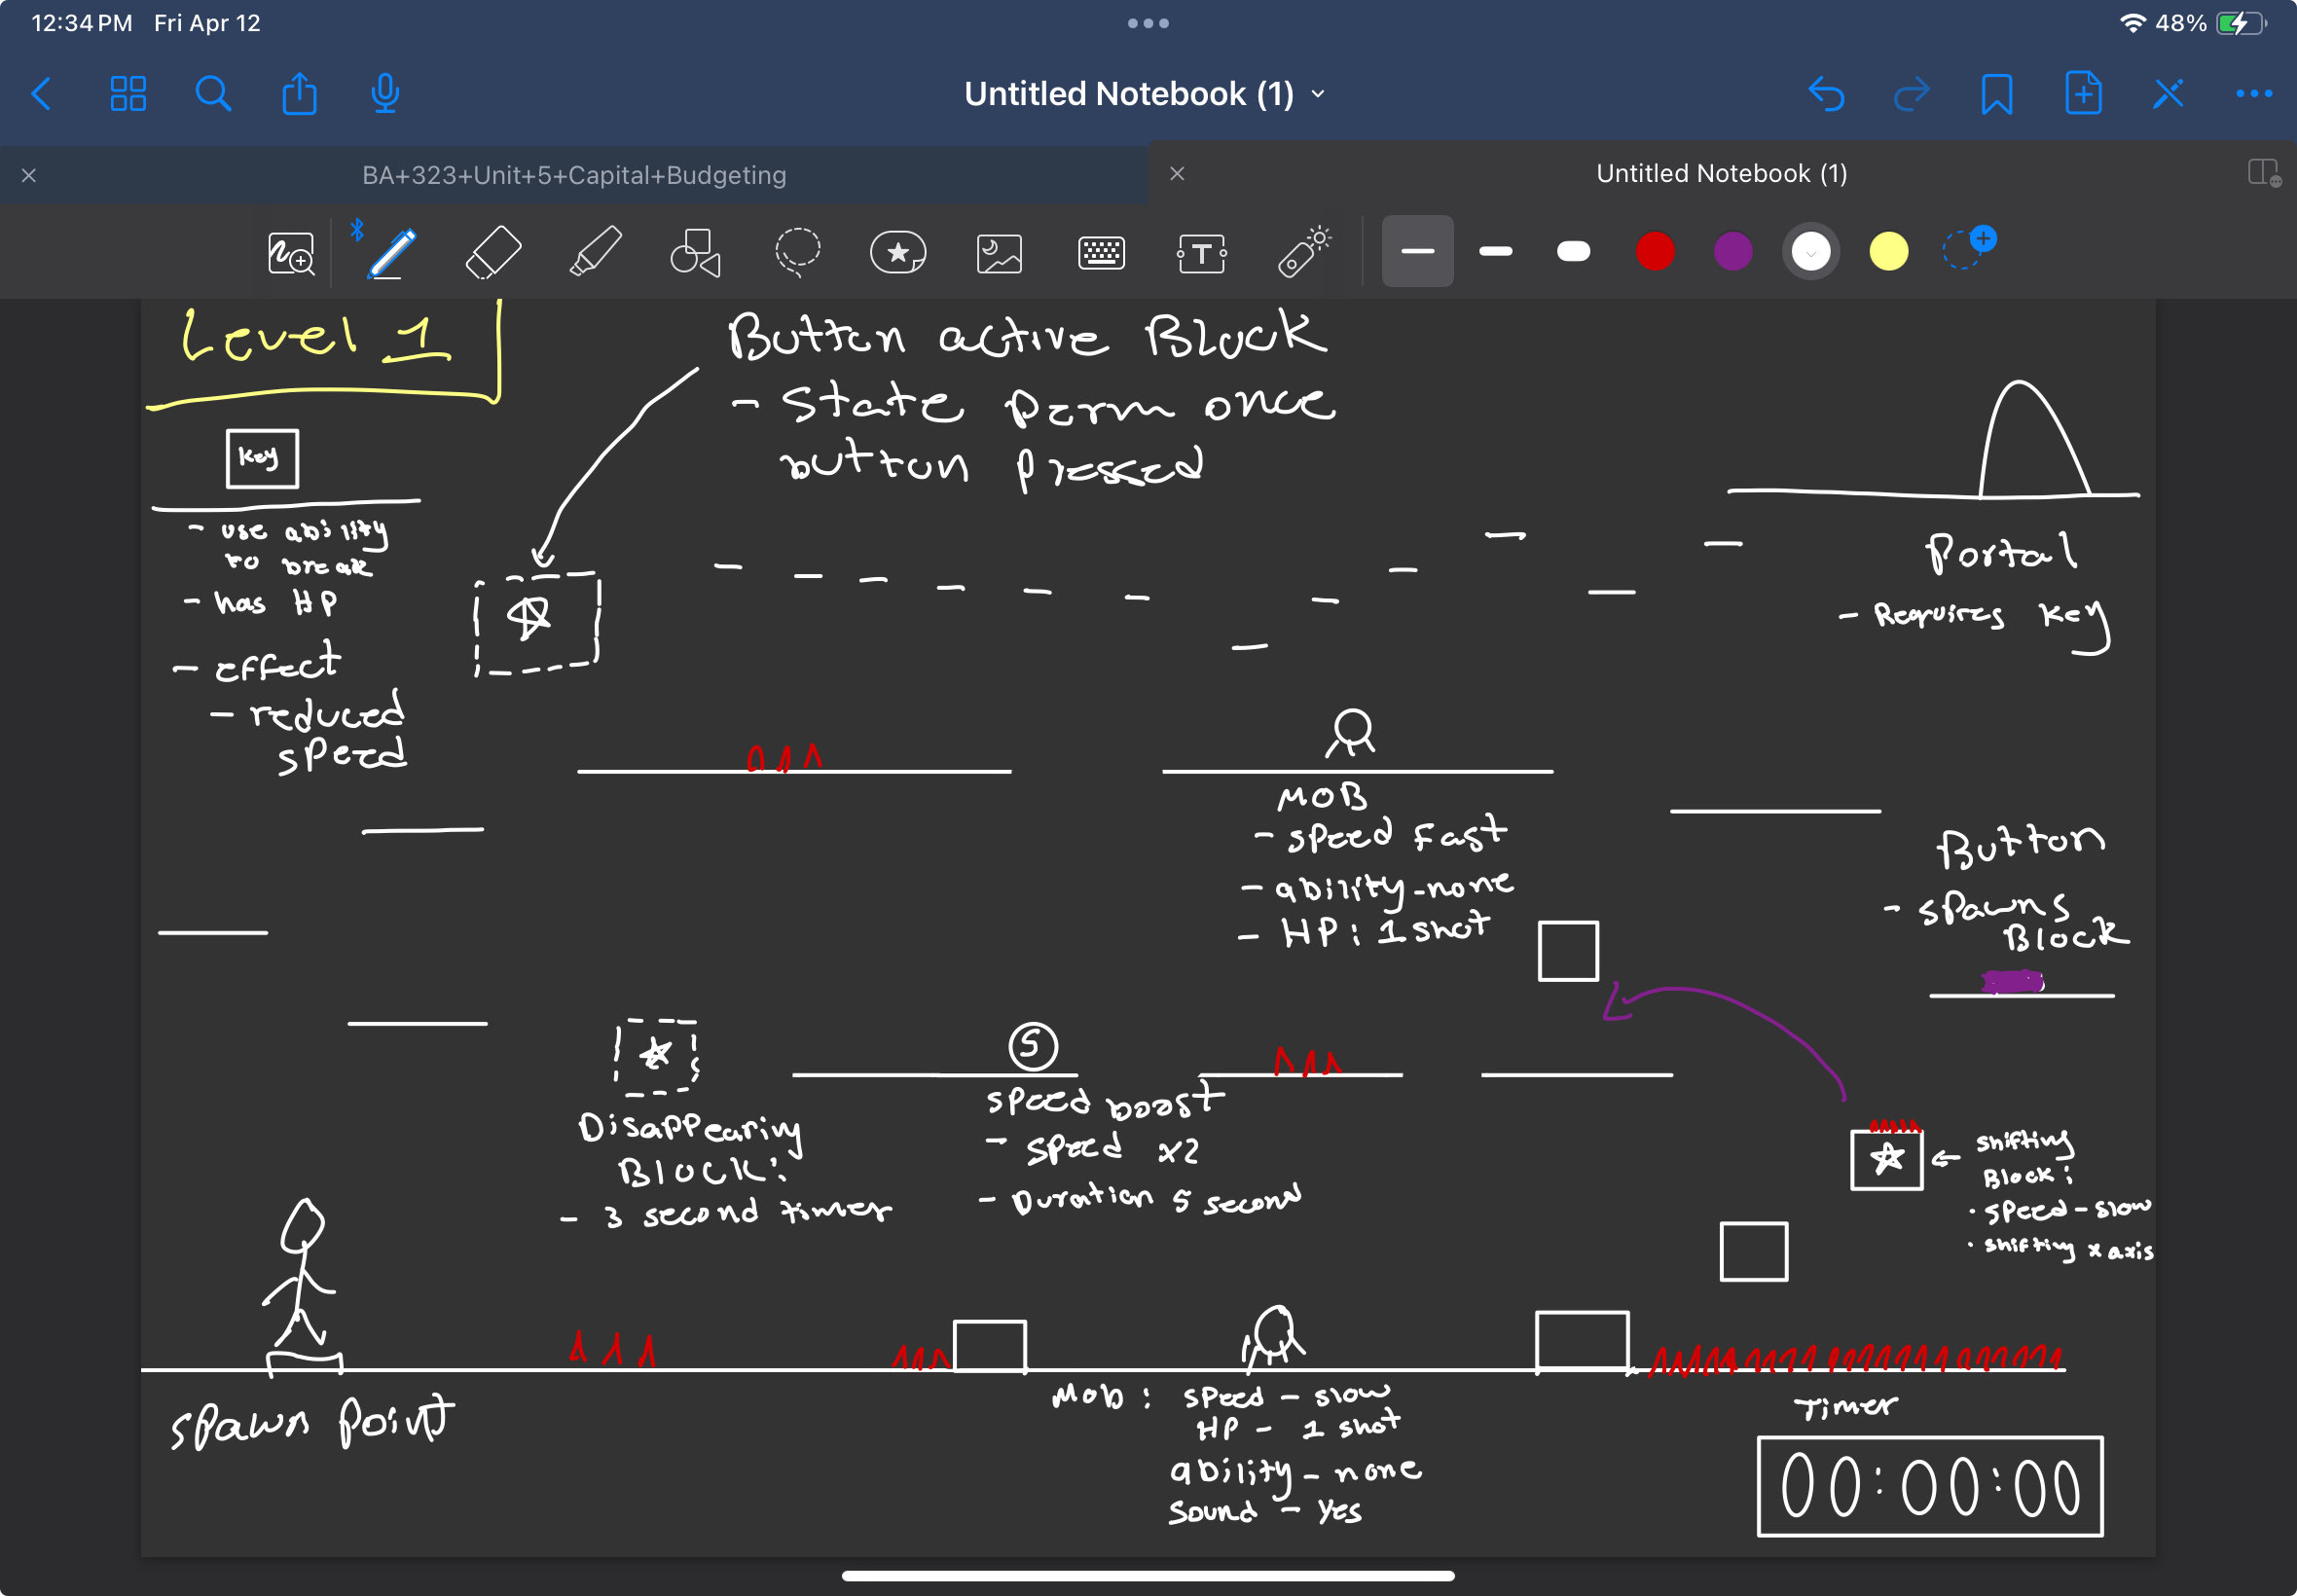 12:34 PM Fri Apr 12
48%
Untitled Notebook (1)
BA+323+Unit+5+Capital+Budgeting
Untitled Notebook (1)
T
Level 1
Button active Block
- State perm once
button pressed
key
- use ability
to break
- has HP
- effect
- reduced
speed
Portal
- Requires key
MOB
- speed fast
- ability - none
- HP: 1 shot
Button
- spawns
Block
S
Disappearing
Block:
- 3 second timer
speed boost
- speed x2
- Duration 5 second
shifting
Block:
· speed - slow
· shifting x axis
spawn point
Mob: speed - slow
HP - 1 shot
ability - none
sound - yes
Timer
00:00:00